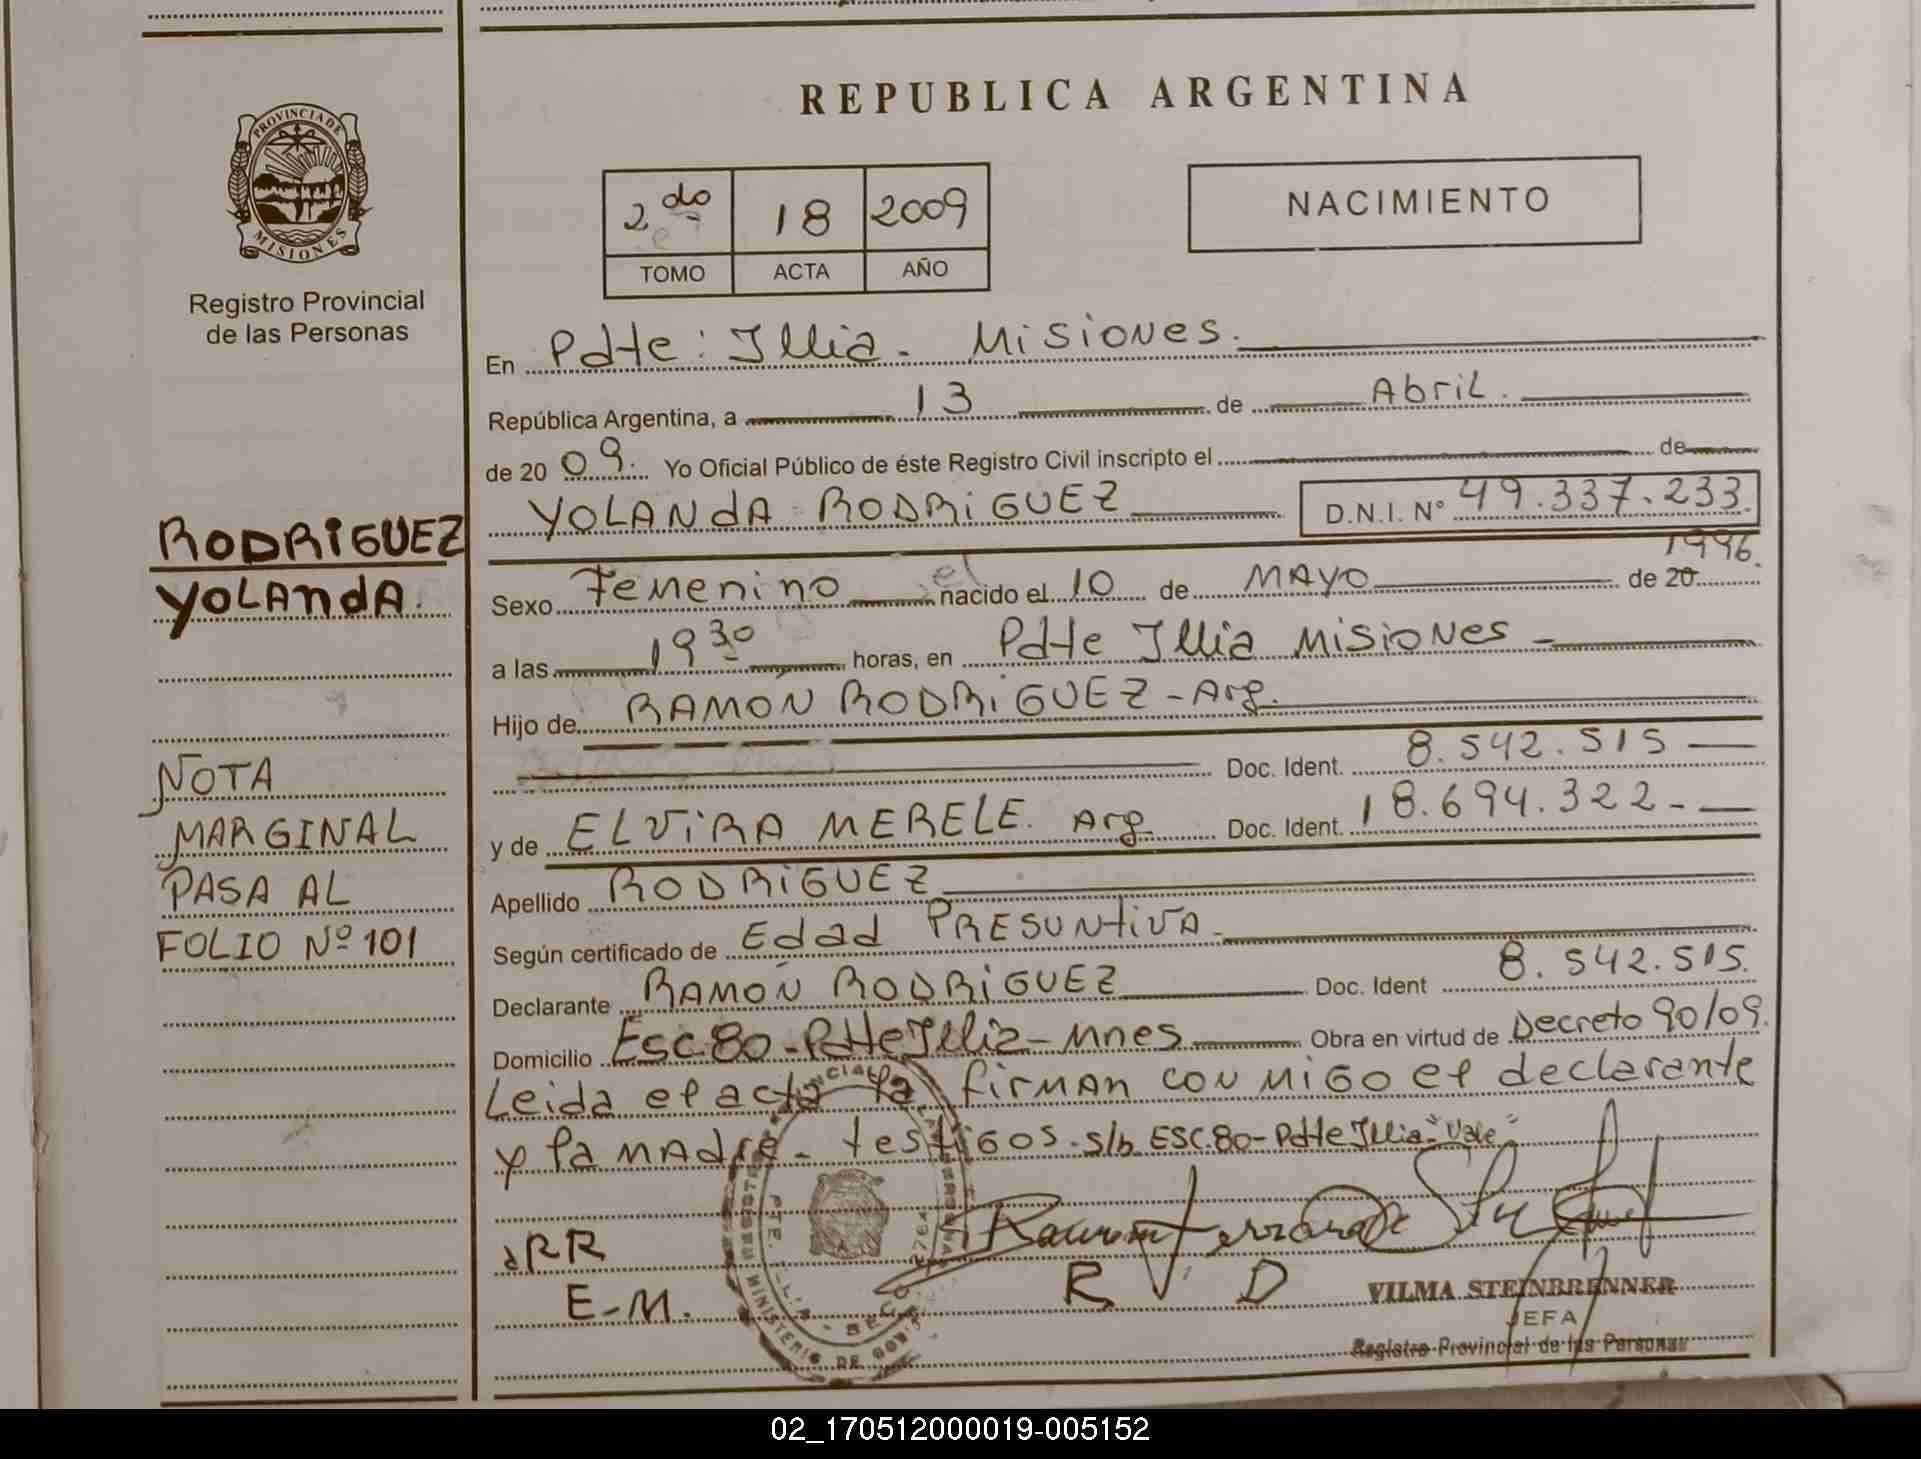 REPUBLICA ARGENTINA
PROVINCIA DE
MISIONES
Registro Provincial
de las Personas
2do 18 2009
TOMO ACTA AÑO
NACIMIENTO
RODRIGUEZ
YOLANDA.
NOTA
MARGINAL
PASA AL
FOLIO Nº 101
En Pdte: Illia - Misiones.
República Argentina, a 13 de Abril.
de 20 09. Yo Oficial Público de éste Registro Civil inscripto el de
YOLANdA RODRiGUEZ D.N.I. N° 49.337.233
1996.
Sexo Femenino nacido el 10 de MAYO de 20
a las 19 30 horas, en Pdte Illia Misiones -
Hijo de RAMÓN RODRiGUEZ - Arg.
Doc. Ident. 8.542.515
y de ELViRA MERELE. Arg Doc. Ident. 18.694.322-
Apellido RODRiGUEZ
Según certificado de Edad PRESUNtiVA -
Declarante RAMÓN RODRiGUEZ Doc. Ident 8.542.515.
Domicilio Esc 80 - Pdte Illia - Mnes Obra en virtud de Decreto 90/09.
Leida el acta la firman conmigo el declarante
y la madre - testigos - s/b ESC.80 - Pdte Illia - "Vale"
RR
E-M.
R V. D
VILMA STEINBRENNER
JEFA
Registro Provincial de las Personas
02_170512000019-005152